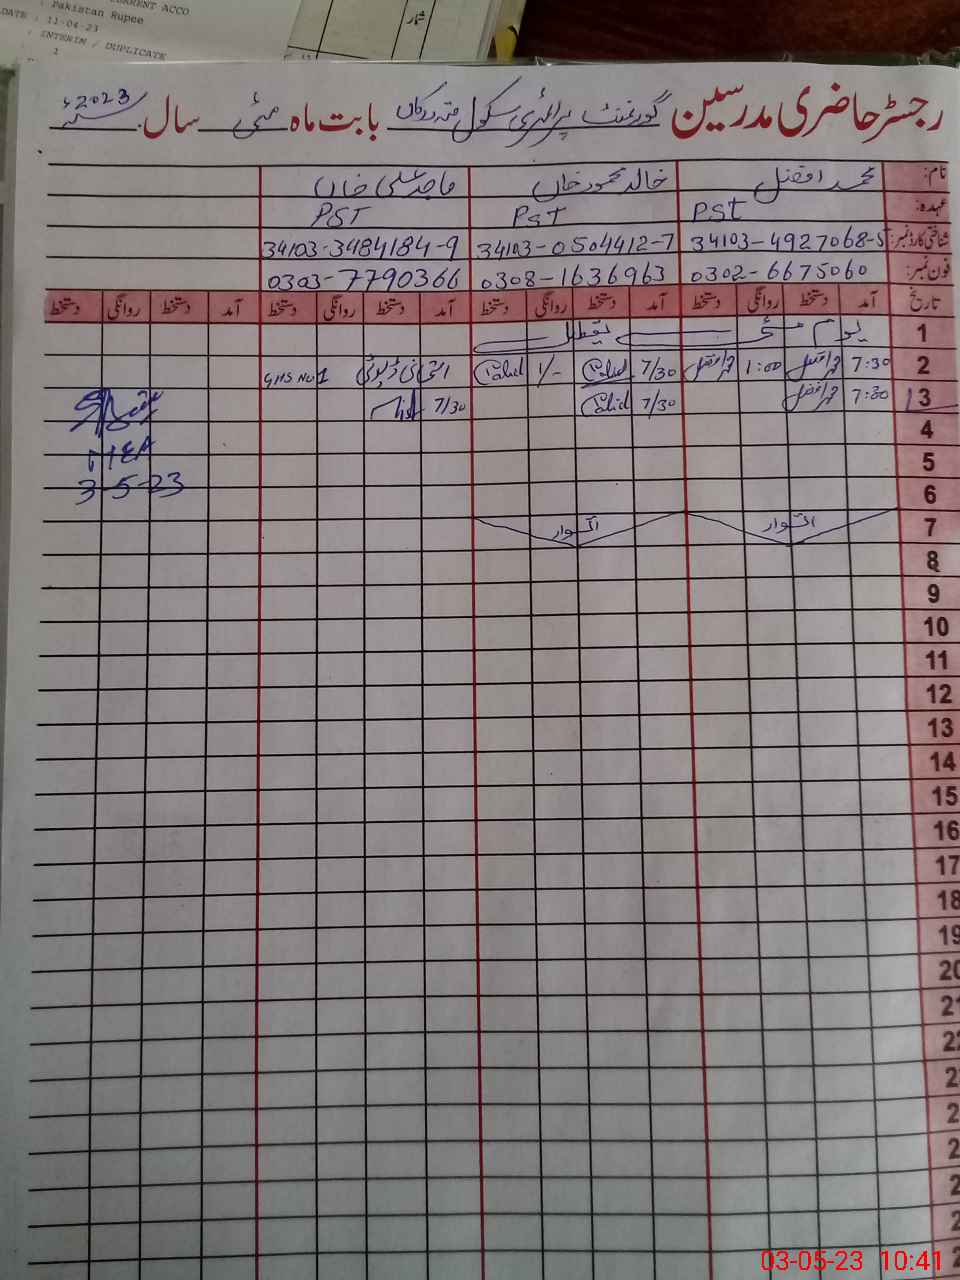 CURRENT ACCO
: Pakistan Rupee
DATE : 11-04-23
: INTERIM / DUPLICATE
1
شمار
رجسٹر حاضری مدرسین گورنمنٹ پرائمری سکول بابت ماہ مئی سال 2023ء
نام: محمد افضل خالد محمود خاں ماجد علی خاں
عہدہ: PST PST PST
شناختی کارڈ نمبر: 34103-4927068-5 34103-0504412-7 34103-3484184-9
فون نمبر: 0302-6675060 0308-1636963 0303-7790366
تاریخ آمد دستخط روانگی دستخط آمد دستخط روانگی دستخط آمد دستخط روانگی دستخط آمد دستخط روانگی دستخط
1 یوم مئی تعطیل
2 7:30 محمد افضل 1:00 محمد افضل 7/30 Khalid 1/- Khalid امتحانی ڈیوٹی GHS No 1
3 7:30 محمد افضل 7/30 Khalid 7/30
4
MEA
5
3-5-23
6
7 اتوار اتوار
8
9
10
11
12
13
14
15
16
17
18
19
20
21
22
2
2
2
2
2
2
03-05-23 10:41